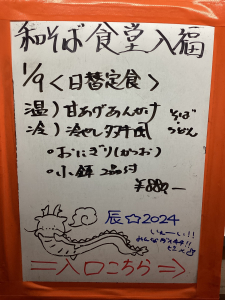 和そば食堂入福
1/9〈日替定食〉
温）甘あげあんかけ そば
冷）冷やしタヌキ風 うどん
・おにぎり（かつお）
・小鉢 2品付
¥880ー
辰☆2024
いぇーい!!
⇒入口こちら⇒